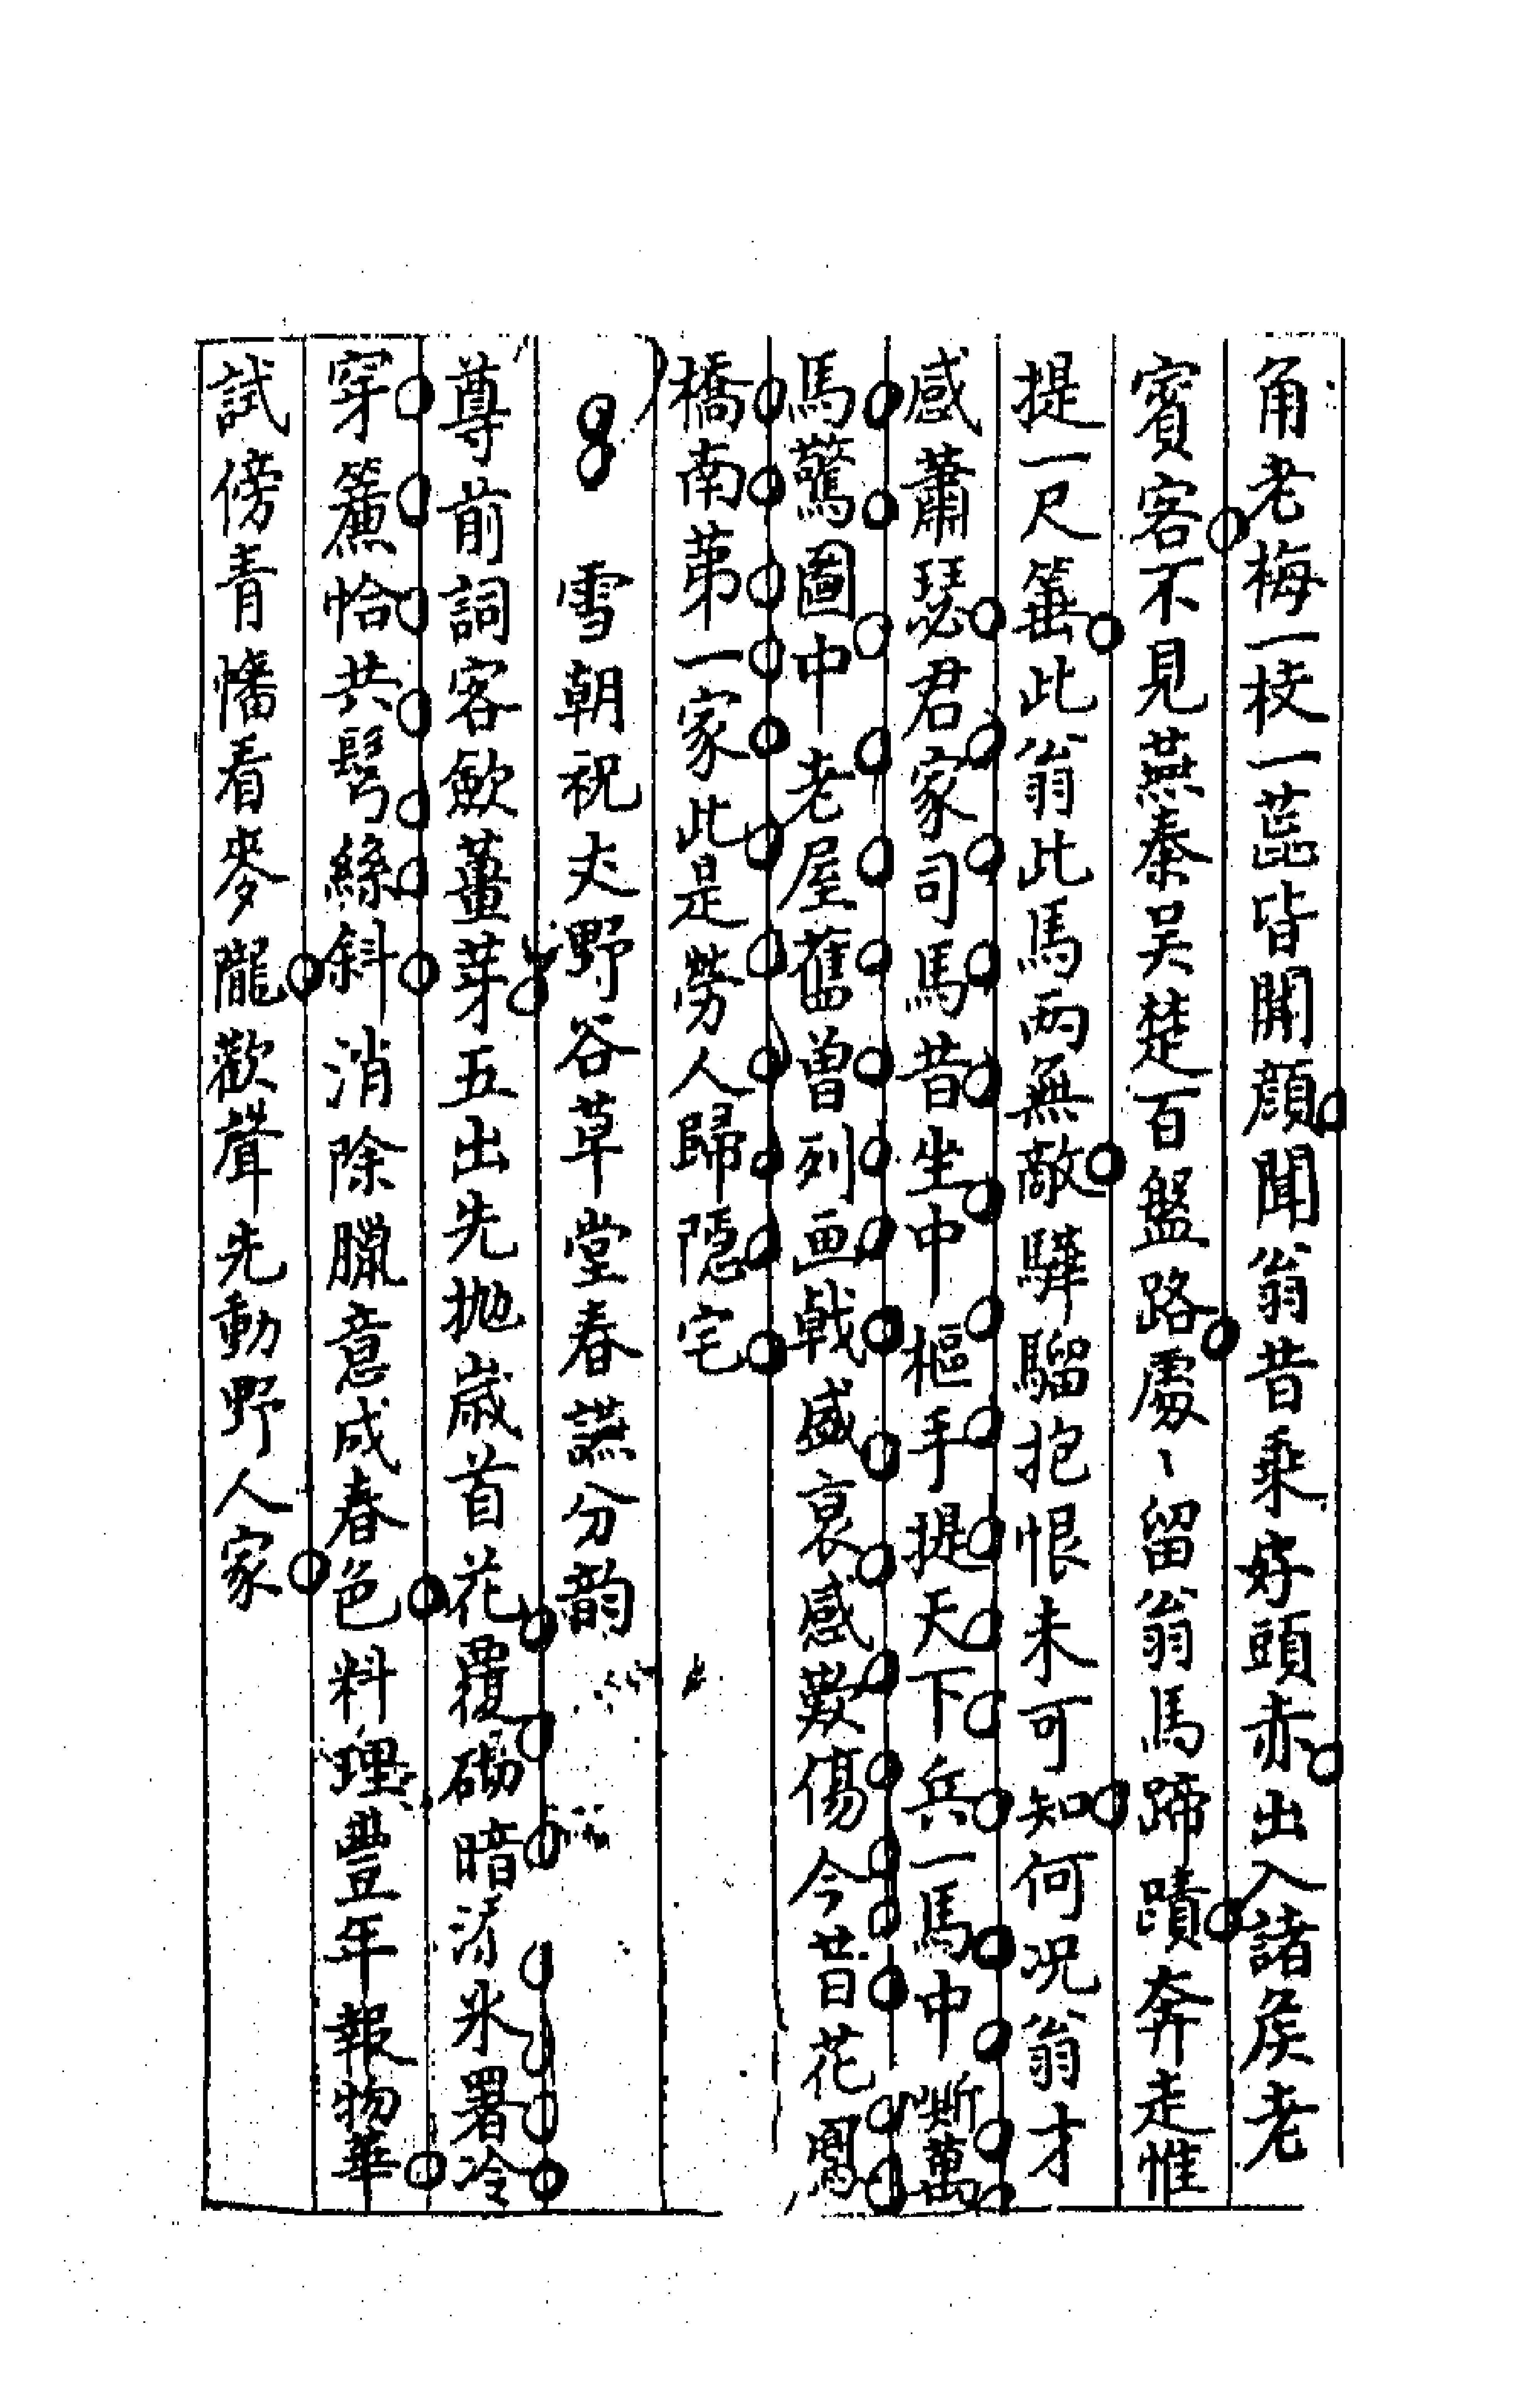 角老梅一枝一蕋皆開顔聞翁昔乘好頭赤出入諸矦老
賓客不見燕秦吳楚百盤路處丶留翁馬蹄蹟奔走惟
提一尺箠此翁此馬兩無敵驊騮抱恨未可知何况翁才
感蕭瑟君家司馬昔坐中樞手提天下兵一馬中嘶萬
馬驚圖中老屋舊曾列画戟盛衰感歎傷今昔花鳬
橋南苐一家此是勞人歸隱宅
雪朝祝丈野谷草堂春讌分韵
尊前詞客歃薑芽五出先抛歳首花覆砌暗添氷署冷
穿簾恰共鬂絲斜消除臘意成春色料理豐年報物華
試傍青幡看麥隴歡聲先動野人家